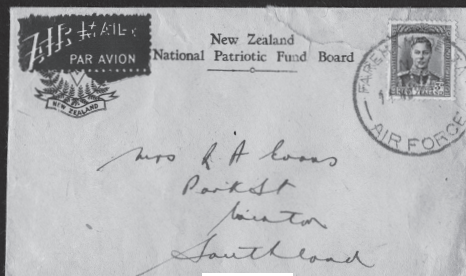 AIR MAIL
PAR AVION
NEW ZEALAND
New Zealand
National Patriotic Fund Board
AIR FORCE
Mrs R A Evans
Park St
Winton
Southland